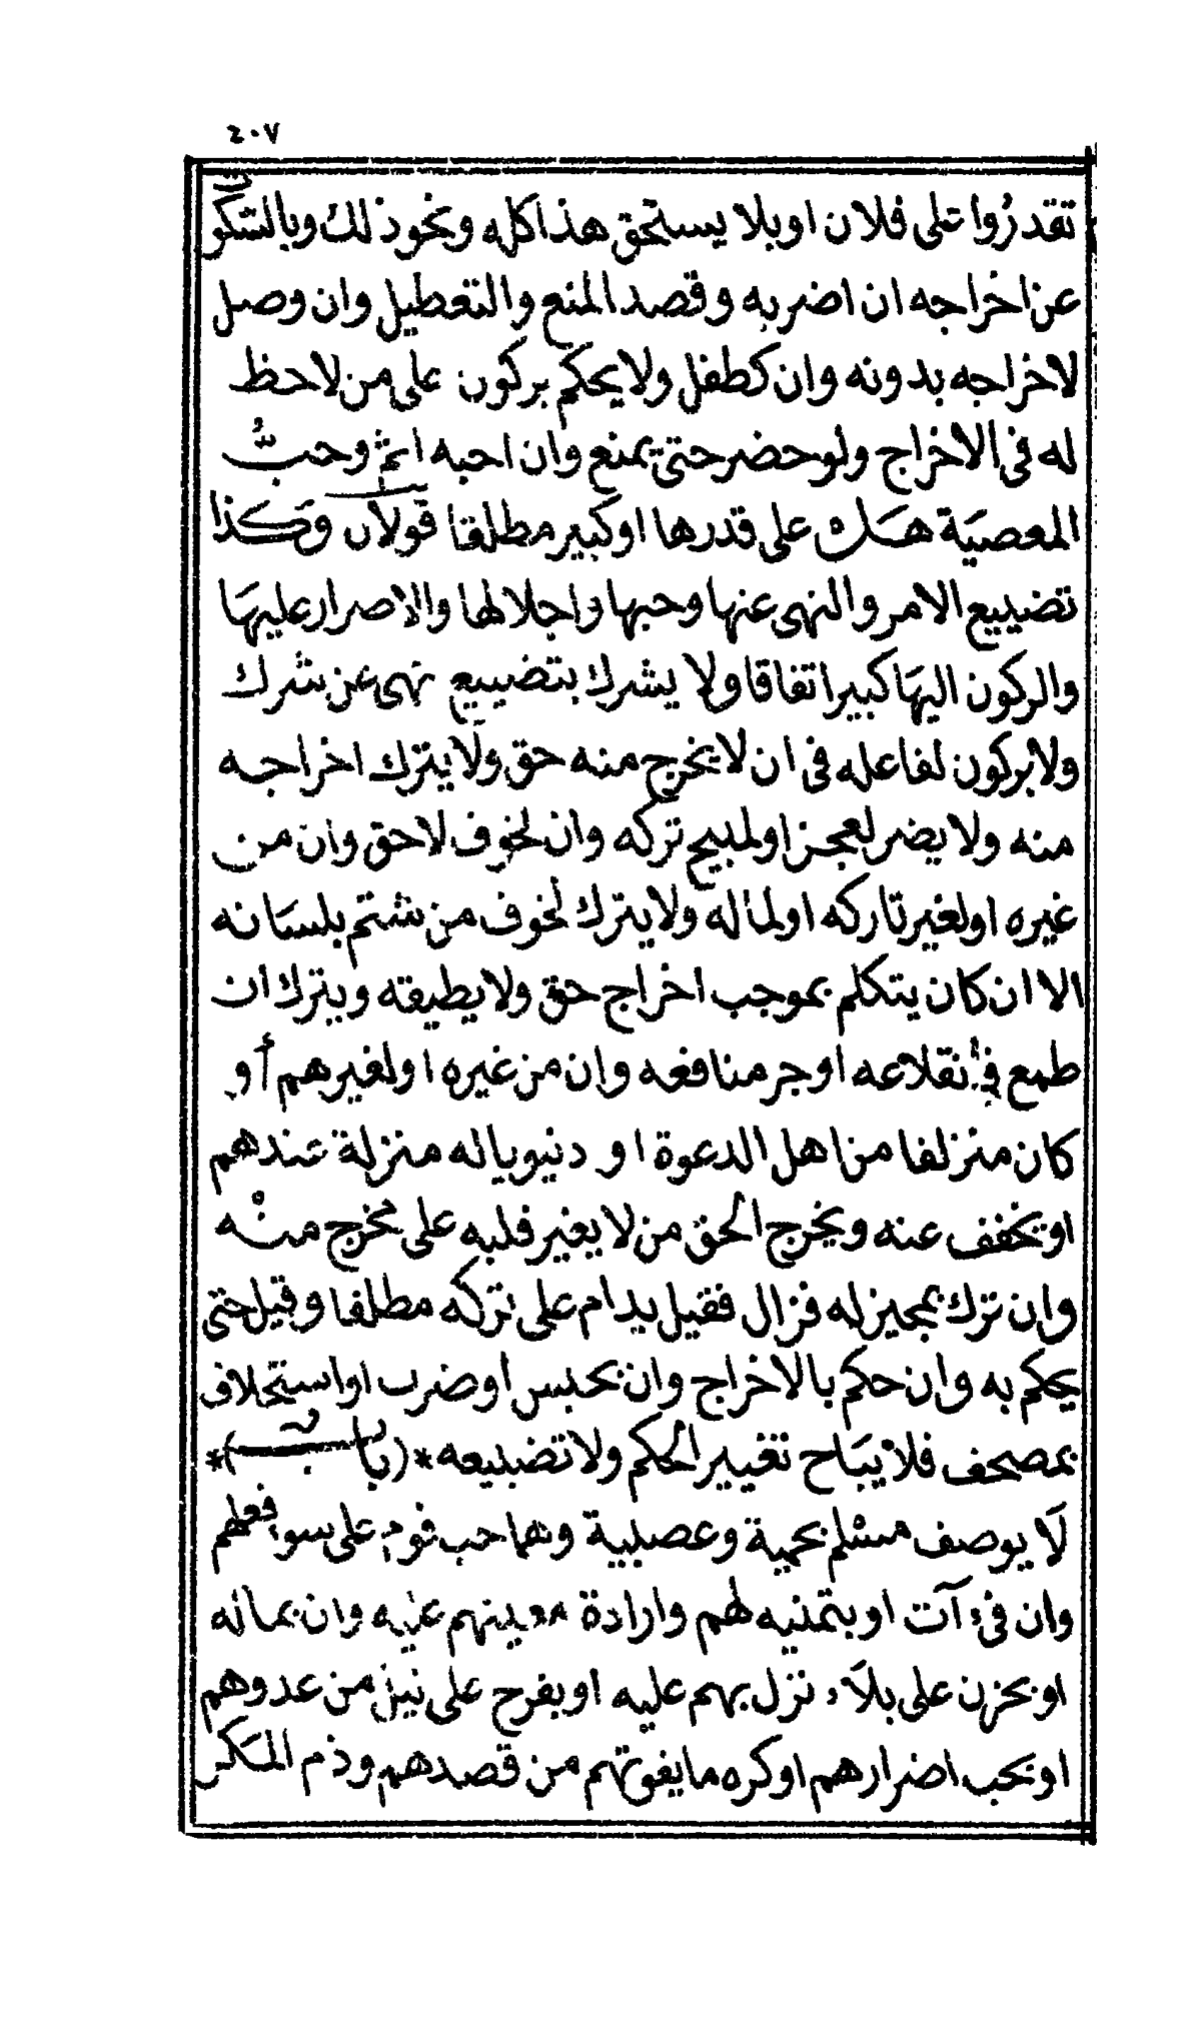 ٤٠٧
تقدروا على فلان او بلا يستحق هذا كله ونحو ذلك وبالتشكي
عن اخراجه ان اضر به وقصد المنع والتعطيل وان وصل
لاخراجه بدونه وان كطفل ولا يحكم بركون على من لاحظ
له فى الاخراج ولو حضر حتى يمنع وان احبه اثم وحبُّ
المعصيَة هـَـل على قدرها او كبير مطلقا قولان وكذا
تضييع الامر والنهى عنها وحبها واجلالها والاصرار عليهَا
والركون اليهَا كبير اتفاقا ولا يشرك بتضييع نهى عن شرك
ولا بركون لفاعله فى ان لا يخرج منه حق ولا يترك اخراجه
منه ولا يضر لعجز او لمبيح تركه وان لخوف لاحق وان من
غيره او لغير تاركه او لماله ولا يترك لخوف من شتم بلسَانه
الا ان كان يتكلم بموجب اخراج حق ولا يطيقه ويترك ان
طمع فى أنقلاعه او جر منافعه وان من غيره او لغيرهم أو
كان منزلفا من اهل الدعوة او دنيويا له منزلة عندهم
او يخفف عنه ويخرج الحق من لا يغير قلبه على مخرج منْه
وان ترك بمجيز له فزال فقيل يدام على تركه مطلقا وقيل حتى
يحكم به وان حكم بالاخراج وان بحبس أو ضرب او استحلاف
بمصحف فلا يبَاح تغيير الحكم ولا تضييعه *(باب)*
لَا يوصف مسْلم بحمية وعصبية وهما حب قوم على سوء فعلهم
وان فى آت او بتمنيه لهم وارادة معينهم عليه وان بماله
او بحزن على بلاَء نزل بهم عليه او بفرح على نيز من عدوهم
او بحب اضرارهم او كره ما يفوتهم من قصدهم وذم المنكر